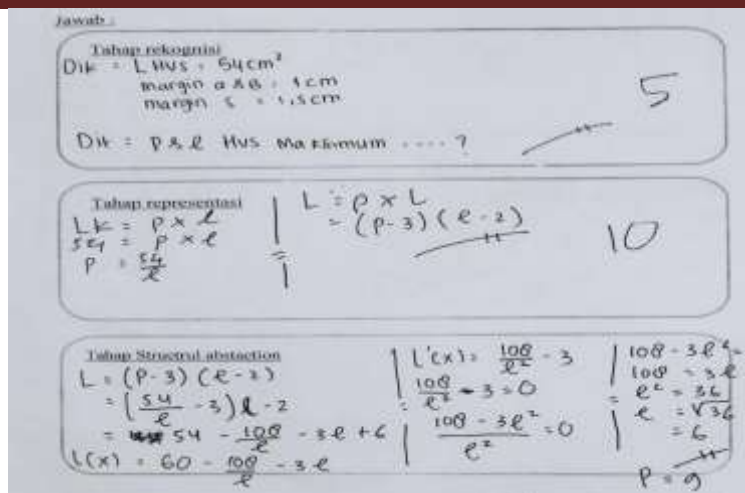 Jawab :
Tahap rekognisi
Dik = L HVS = 54 cm²
margin a & B = 1 cm
margin S = 1,5 cm
Dit = P & l HVS Maksimum .... ?
5
Tahap representasi
LK = P x l
54 = P x l
P = 54/l
L = P x L
= (P-3) (l-2)
10
Tahap Structrul abstaction
L = (P-3) (l-2)
= (54/l - 3) l - 2
= 54 - 108/l - 3l + 6
L(x) = 60 - 108/l - 3l
L'(x) = 108/l² - 3
= 108/l² - 3 = 0
108 - 3l²/l² = 0
108 - 3l² =
108 = 3l
= l² = 36
l = √36
= 6
P = 9